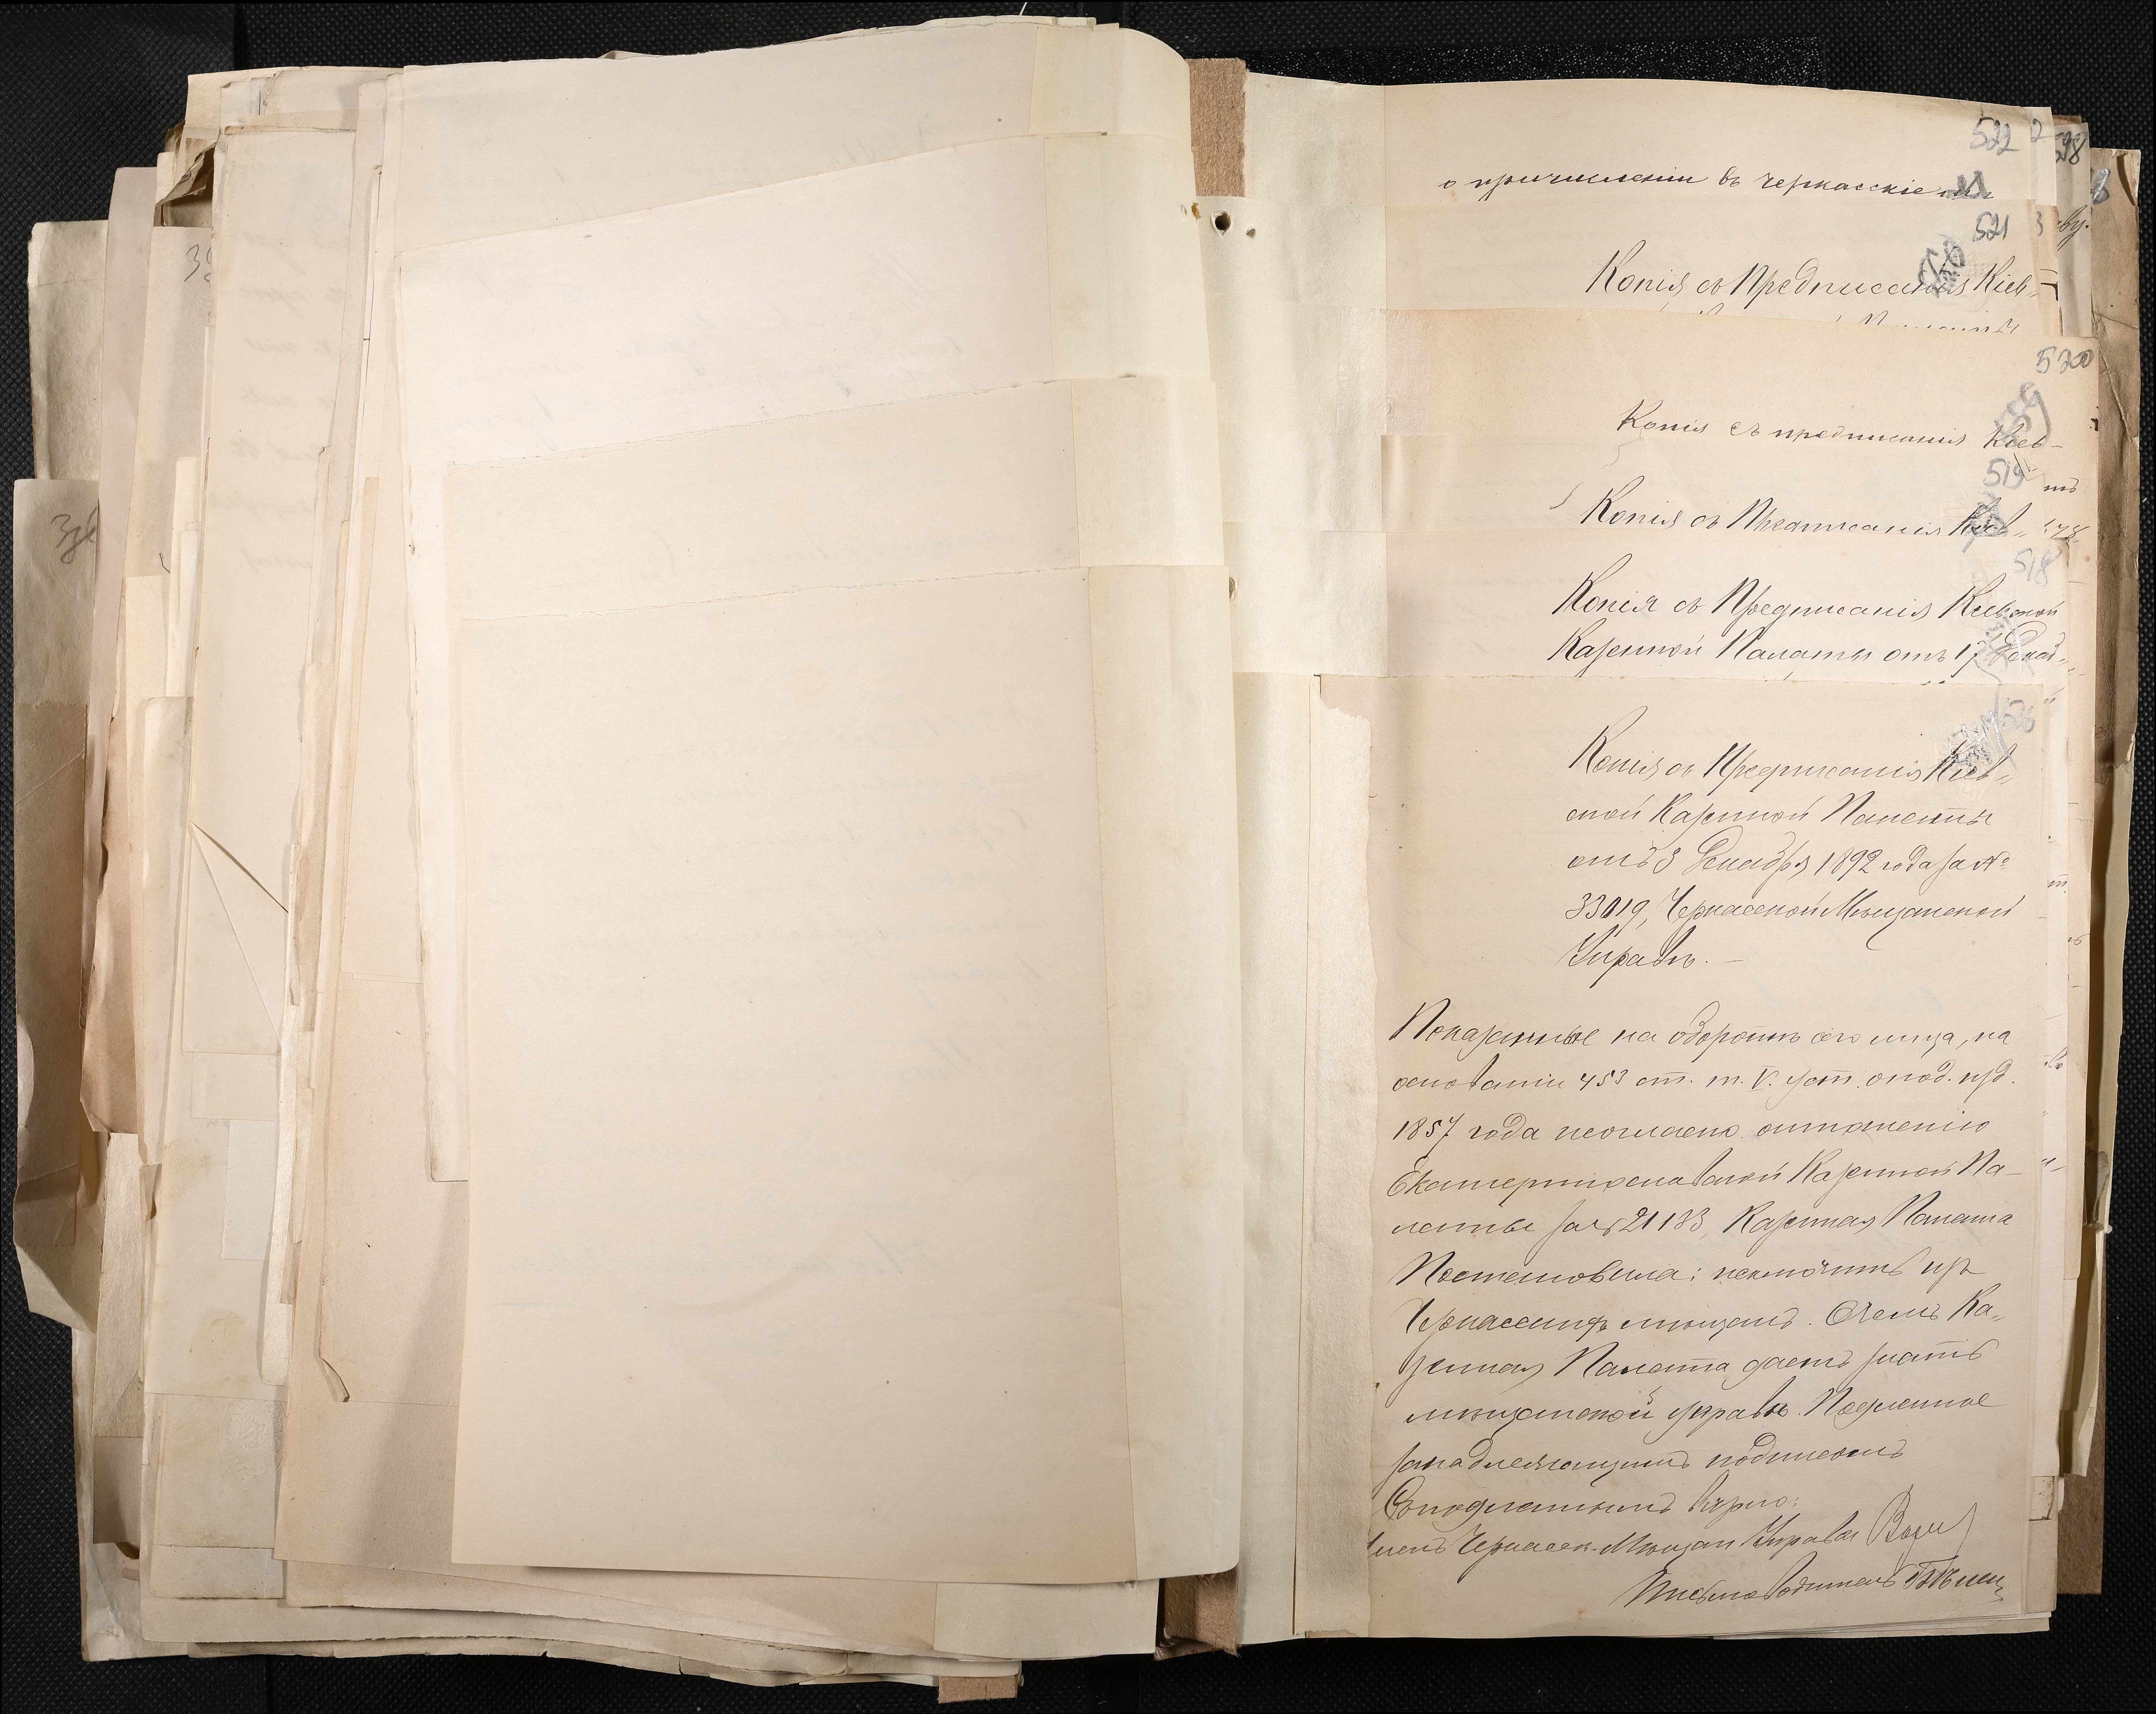 522
о причисленіи въ Черкасскіе
521
Копія съ Предписанія Кіев-
520
Копія съ предписанія Кіев-
519
Копія съ Предписанія Кіев-
518
Копія съ Предписанія Кіевской
Казенной Палаты отъ 17 Декаб-
Копія съ Предписанія Кіев-
ской Казенной Палаты
отъ 3 Декабря 1892 года за №
33019, Черкасской Мѣщанской
Управѣ. —
Показанные на оборотѣ сего лица, на
основаніи 453 ст. т. V. уст. о под. изд.
1857 года и согласно отношенію
Екатеринославской Казенной Па-
латы за № 21133, Казенная Палата
Постановила: исключить изъ
Черкасскихъ мѣщанъ. О чемъ Ка-
зенная Палата даетъ знать
мѣщанской управѣ. Подлинное
за надлежащимъ подписомъ
Съ подлиннымъ вѣрно:
Членъ Черкасск. Мѣщан. Управы
Письмоводитель